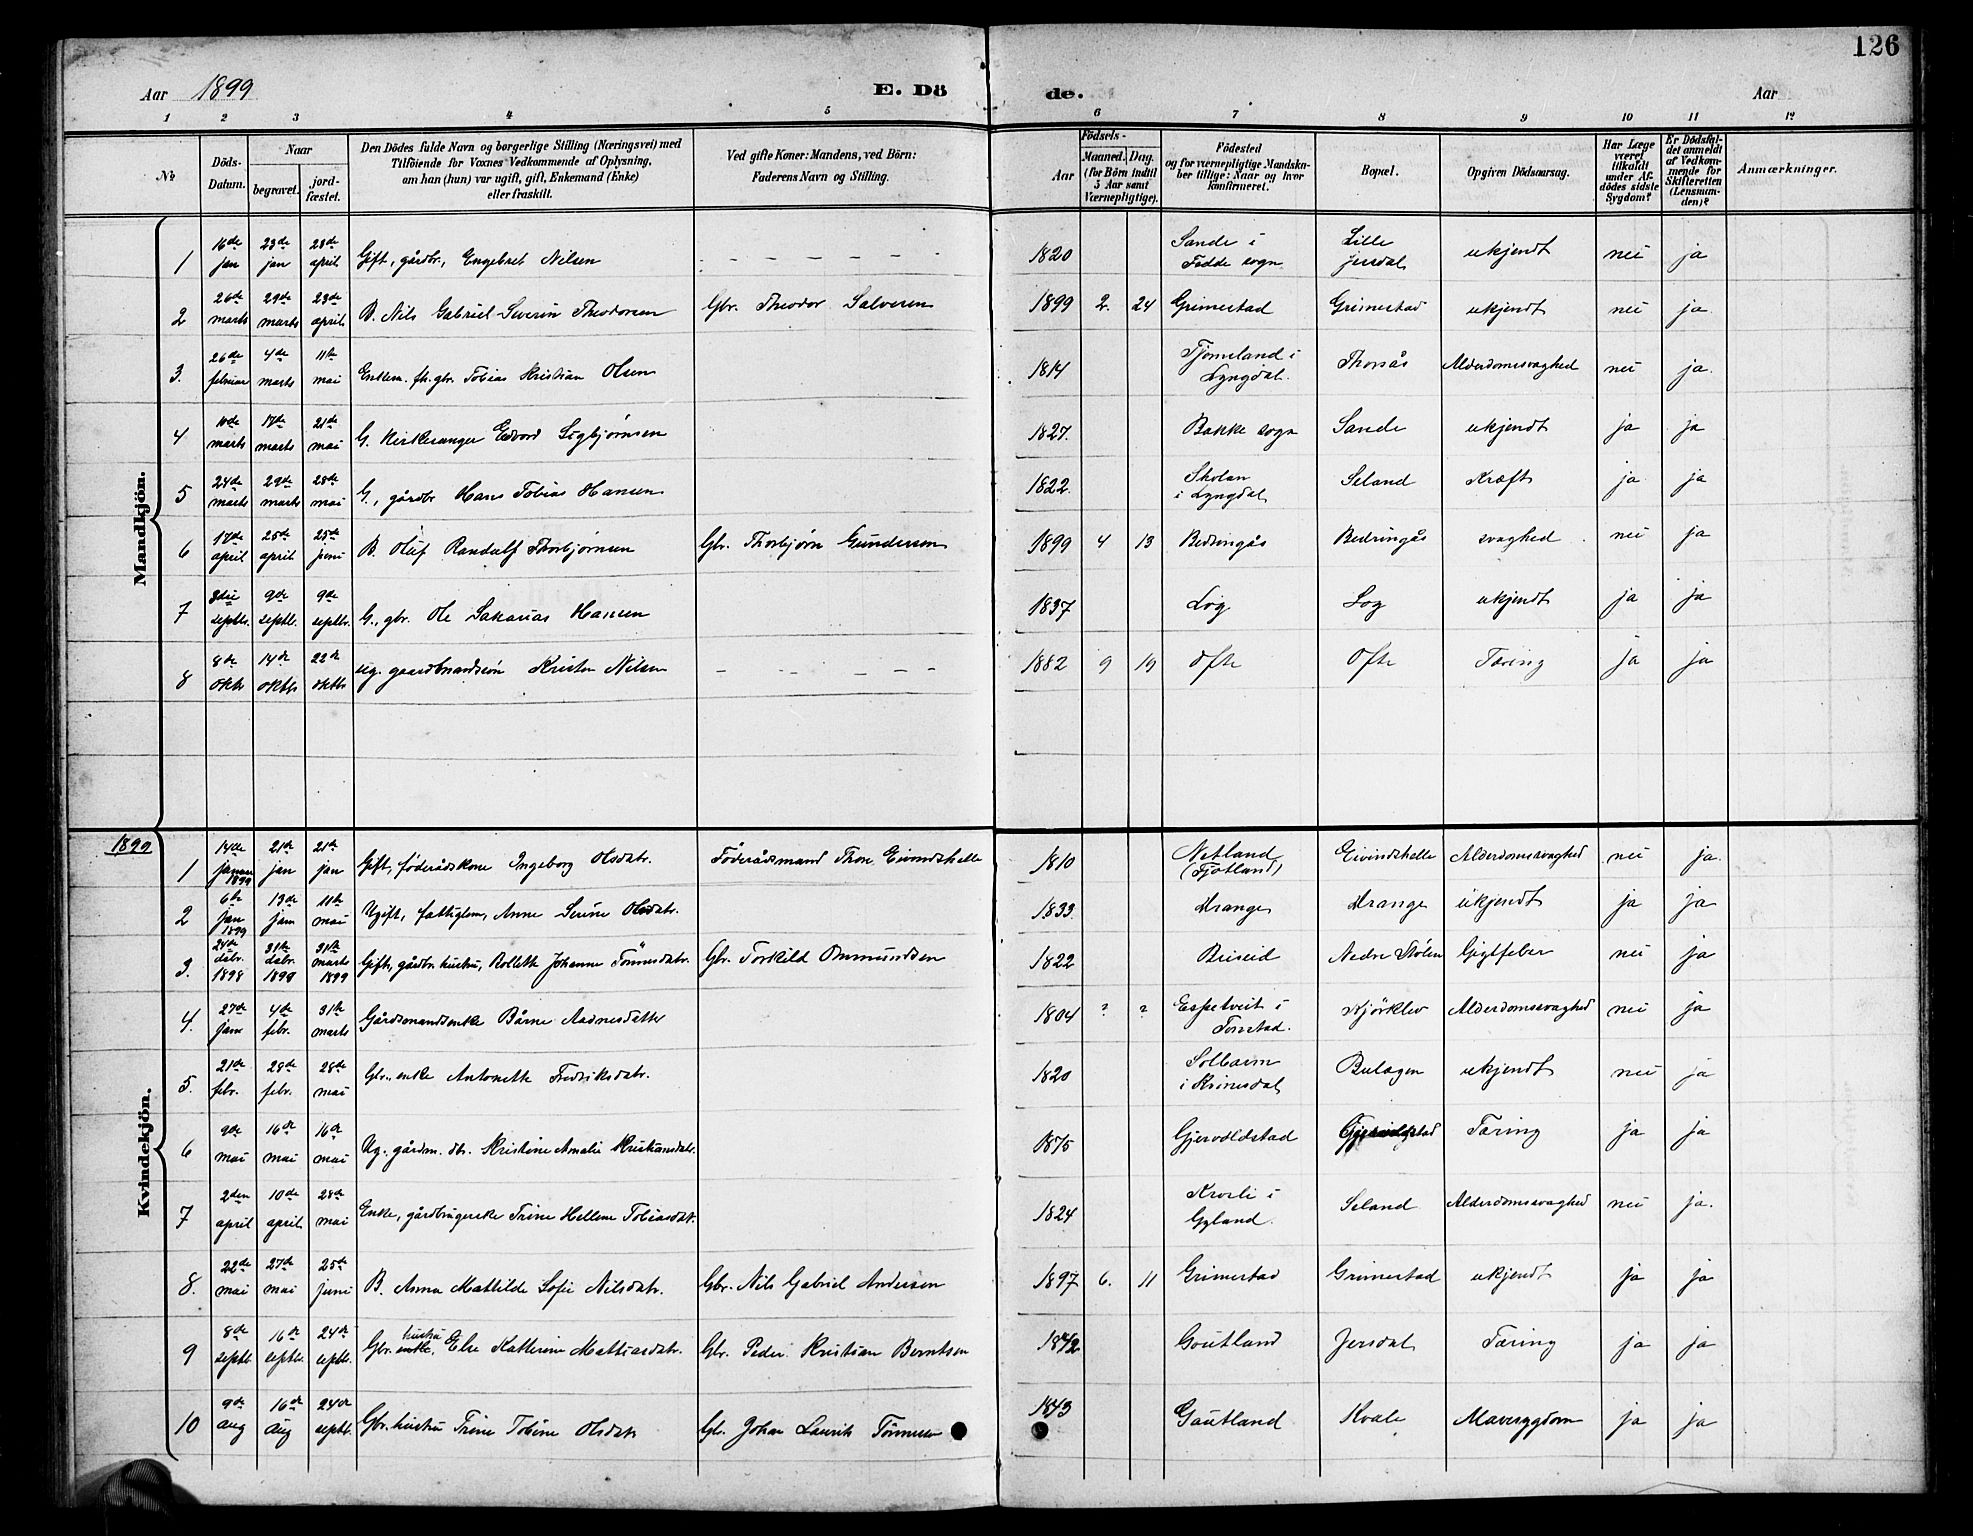 126
Aar 1899 E. Dö de. Aar
1 2 3 4 5 6 7 8 9 10 11 12
№ Döds-Datum. Naar begravet. jordfæstet. Den Dödes fulde Navn og borgerlige Stilling (Næringsvei) med Tilföiende for Voxnes Vedkommende af Oplysning, om han (hun) var ugift, gift, Enkemand (Enke) eller fraskilt. Ved gifte Koner: Mandens, ved Börn: Faderens Navn og Stilling. Födsels- Aar Maaned. Dag. (for Börn indtil 5 Aar samt Værnepligtige). Födested og for værnepligtige Mandskaber tillige: Naar og hvor konfirmeret. Bopæl. Opgiven Dödsaarsag. Har Læge været tilkaldt under Afdödes sidste Sygdom? Er Dödsfaldet anmeldt af Vedkommende for Skifteretten (Lensmanden)? Anmærkninger.
Mandkjön.
1 16de jan 23de jan 23de april Gift, gårdbr., Engebret Nilsen 1820 Sande i Fedde sogn Lille Jersdal ukjendt nei ja
2 26de marts 29de marts 23de april B. Nils Gabriel Severin Theodorsen Gbr. Theodor Salvesen 1899 2. 24 Grimestad Grimestad ukjendt nei ja
3. 26de februar 4de marts 11te mai Enkem. fh. gbr. Tobias Kristian Olsen 1814 Tjomsland i Lyngdal. Thorsås Alderdomssvaghed nei ja.
4 10de marts 17de marts 21de mai G. Kirkesanger Edvard Sigbjørnsen 1827. Bakke sogn Sande ukjendt ja ja
5 24de marts 29de marts 28de mai G., gårdbr Hans Tobias Hansen 1822. Skolan i Lyngdal Seland Kræft ja ja
6 17de april 25de april 25de juni B. Oluf Randulf Thorbjørnsen Gbr. Thorbjørn Gundersen 1899 4 13 Bedringås Bedringås svaghed nei ja
7 3die septbr. 9de septbr. 9de septbr. G., gbr. Ole Sakarias Hansen 1837 Log Log ukjendt ja ja
8 8de oktb 14de oktbr 22de oktbr ug. gaardbrandssøn Krister Nilsen 1882 9 19 Ofte Ofte Tæring ja ja
1899
Kvindekjön.
1 14de januar 1899 21de jan 21de jan Gift, føderådskone Ingeborg Olsdatr. Føderådsmand Thore Eivindshelle 1810 Netland (Fjotland) Eivindshelle Alderdomssvaghed nei ja.
2 6te jan 1899 13de jan 11te mai Ugift, fattiglem, Anne Serine Olsdatr. 1833. Hrange Hrange ukjendt ja ja
3. 24de dsbr. 1898 31te dsbr. 1898 31te marts 1899 Gift, gårdbr. hustru, Rollette Johanne Tønnesdatr. Gbr. Torkild Ommundsen 1822 Briseid Nedre Stølen Gigtfeber nei ja
4. 27de jan 4de febr. 31te marts Gårdsmandsenke Bårne Aadnesdatter 1804 ? ? Espetveit i Tonstad. Bjørklev Alderdomssvaghed nei ja
5. 21de febr. 28de febr. 28de mai Gbr. enke Antonette Fredriksdatr. 1820 i Kvinesdal Bulægen ukjendt nei ja
6 9de mai 16de mai 16de mai Ug. gårdm. dtr. Kristine Amalie Kristiansdatr. 1875 Gjervoldstad Gjervoldstad Tæring ja ja
7 2den april 10de april 28de mai Enke, gårdbrugerske Trine Hellene Tobiasdatr. 1824 Krosli i Gyland. Seland Alderdomssvaghed nei ja.
8. 22de mai 27de mai 25de juni B. Anna Mathilde Sofie Nilsdatr. Gbr. Nils Gabriel Andersen 1897 6. 11 Grimestad Grimestad ukjendt ja ja
9 8de septbr. 16de septbr. 24de septbr. Gbr. enke, hustru Else Katterine Mathiasdatr. Gbr. Peder Kristian Berntsen 1842 Goutland Jersdal Tæring ja ja
10 9de aug 16de aug 24de septbr. Gbr. hustru Trine Tobine Olsdatr Gbr. Johan Laurits Tønnesen 1843 Gautland Kvale Mavesygdom ja ja